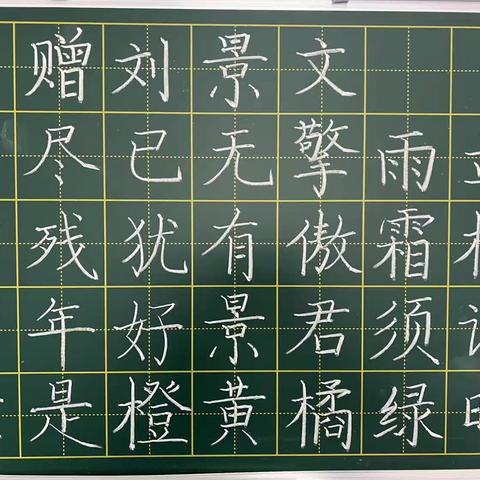 赠刘景文
尽已无擎雨
残犹有傲霜
年好景君须
是橙黄橘绿